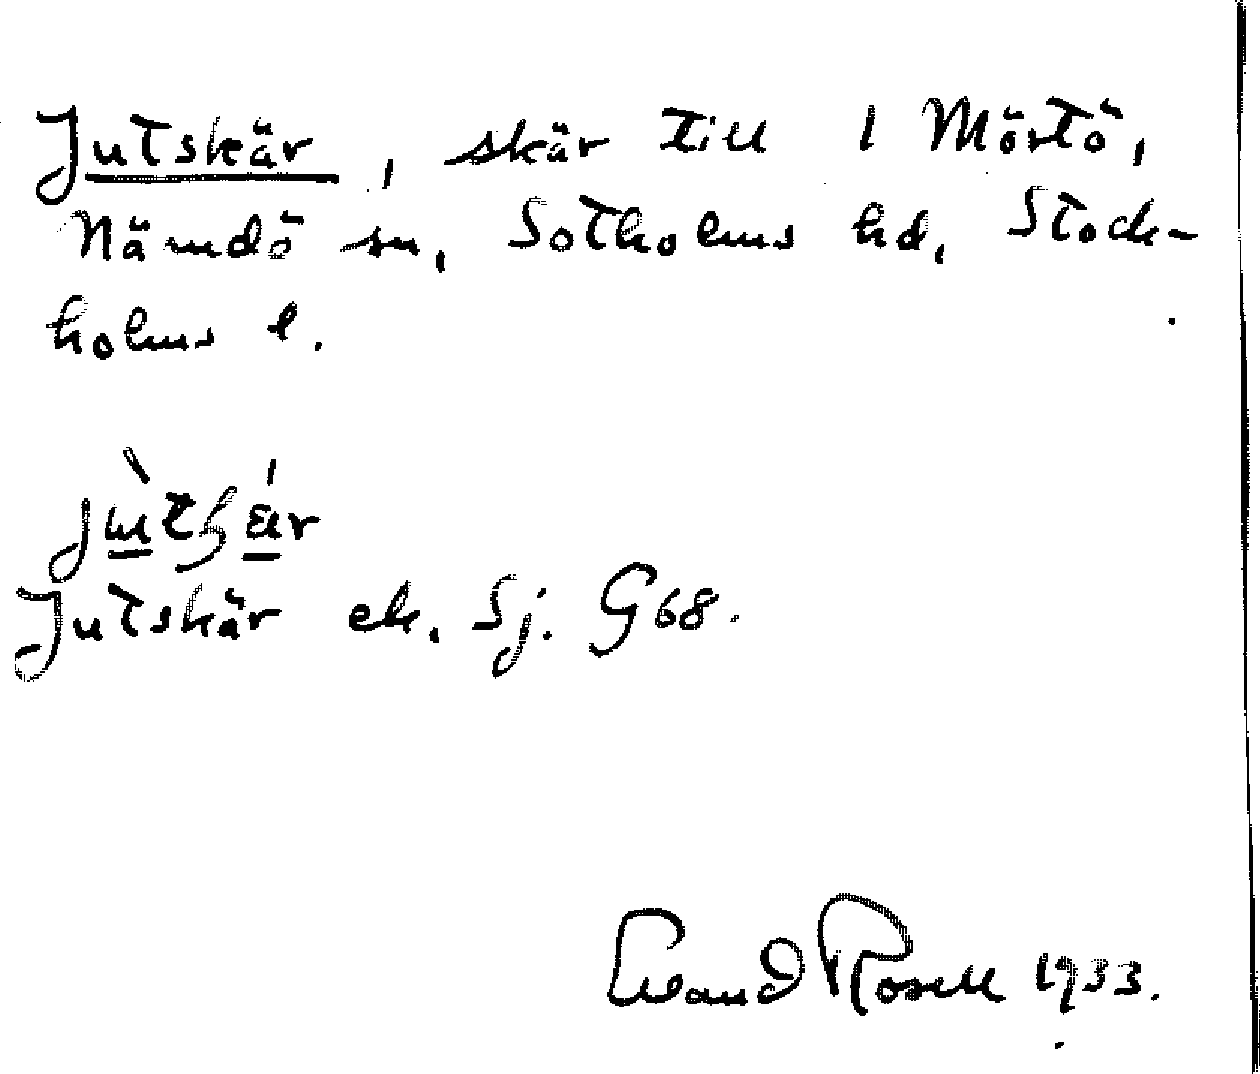 Jutskär, skär till 1 Mörtö,
Nämdö sn, Sotholms hd, Stock-
holms l.
Jutskär ek. Sj. G 68.
Evand Rosell 1933.